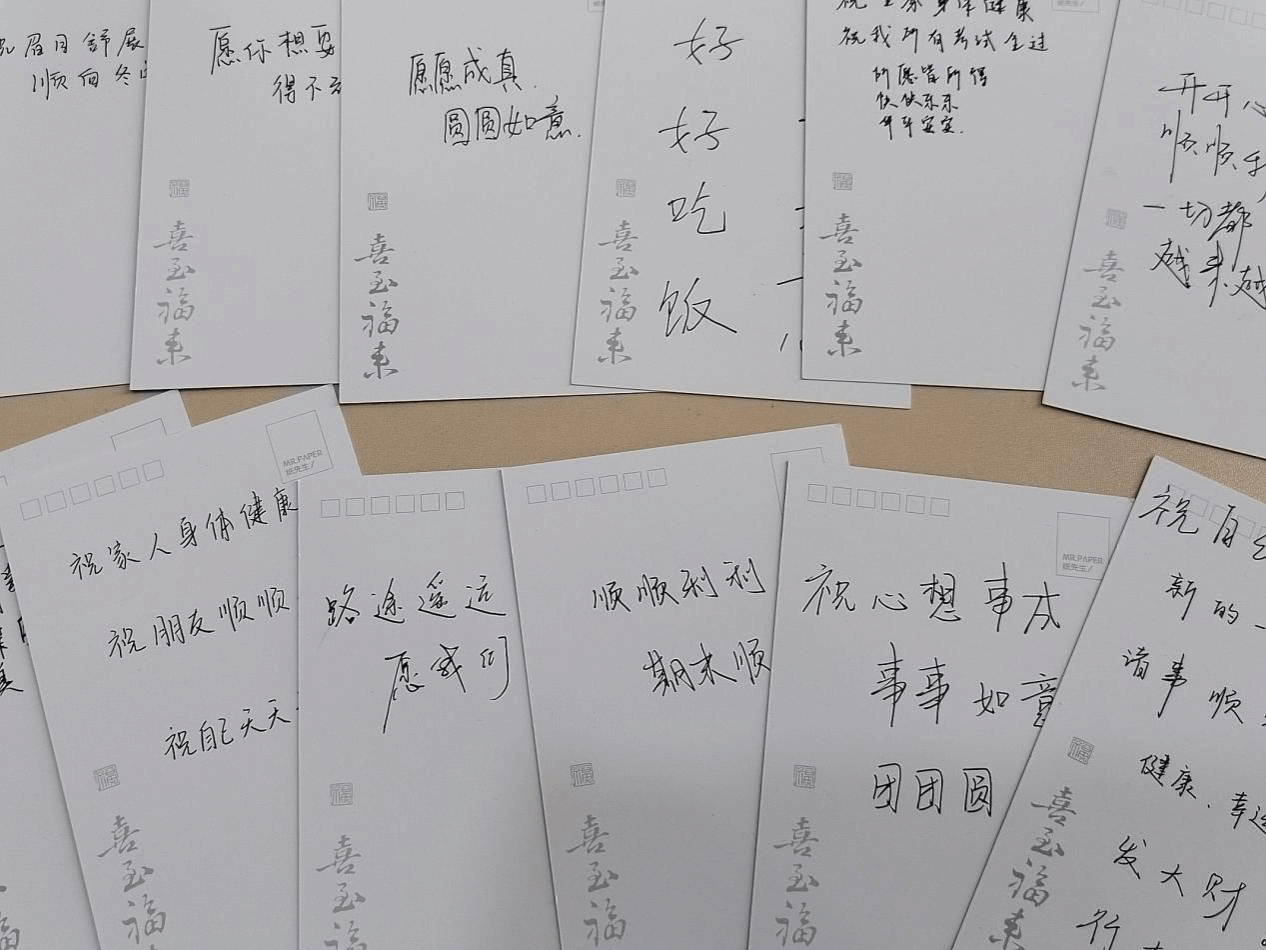 眉目舒展
顺问冬
愿你想要
得不
愿愿成真.
圆圆如意.
好
好
吃
饭
祝全家身体健康
祝我所有考试全过
所愿皆所得
快快乐乐
平平安安.
开开心
顺顺
一切都
越来越
福
喜至福来
福
喜至福来
福
喜至福来
福
喜至福来
福
喜至福来
MR.PAPER
纸先生/
祝家人身体健康
祝朋友顺顺
祝自己天天
福
喜至福
路途遥远
愿我们
福
喜至福
顺顺利利
期末顺
福
喜至福
MR.PAPER
纸先生/
祝心想事成
事事如意
团团圆
福
喜至福
祝自己
新的一
诸事顺
健康、幸运
发大财
行
福
喜至福来